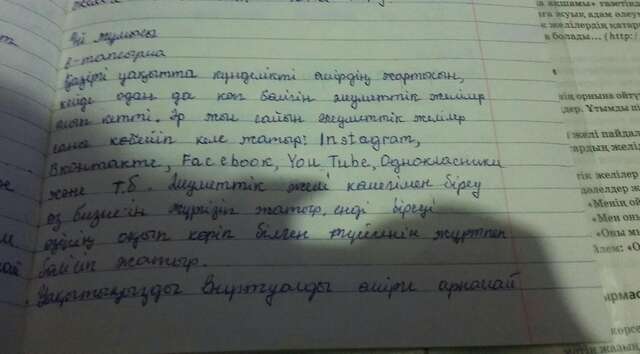 Үй жұмысы
6-тапсырма
Қазіргі уақытта күнделікті өмірдің жартысын,
кейде одан да көп бөлігін әлуметтік желілер
алып кетті. Әр жыл сайын әлуметтік желілер
саны көбейіп келе жатыр: Instagram,
Вконтакте, Facebook, You Tube, Однокласники
және т.б. Әлуметтік желі көмегімен біреу
өз бизнесін жүргізіп жатыр, енді біреуі
өзінің оқып көріп білген түйгенін жұртпен
бөлісіп жатыр.
Уақытыңызды виртуалды өмірге арнамай
а ақшамы» газетінде
ға жуық адам әлеум
к желілердің қатары
а болады... (http:/
нің орнына ойту
дер. Ұтымды пі
желі пайдал
тардың желіл
тік желілер
дәлелдер ж
«Менің ой
«Мен оны
«Оны мы
йлем: «Ос
ырмас
көрсе
мәтін жалын